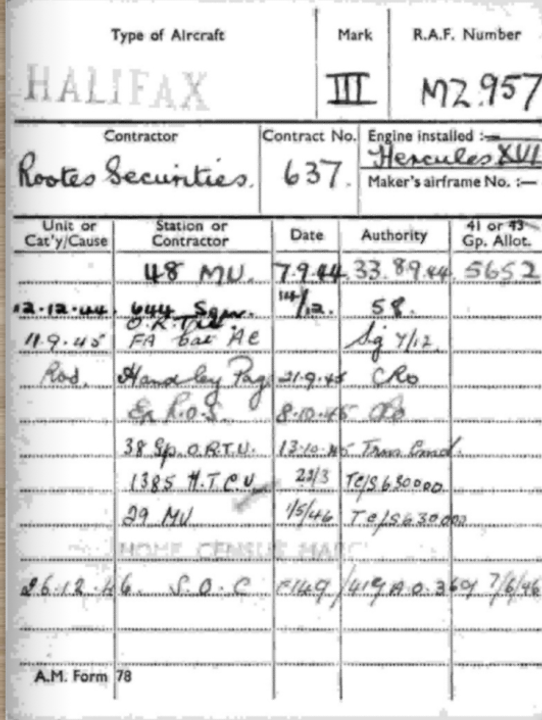 Type of Aircraft Mark R.A.F. Number
HALIFAX III MZ.957
Contractor Contract No. Engine installed :—
Rootes Securities. 637. Hercules XVI
Maker's airframe No. :—
Unit or Cat'y/Cause Station or Contractor Date Authority 41 or 43 Gp. Allot.
48 MU. 7.9.44. 33.89.44 5652
12.12.44. 644 Sqn. 14/12. 58.
O.R.T.U.
11.9.45 FA Cat AC Sig 7/12
Rod. Handley Page 21.9.45 CRO
Ex R.O.S. 8.10.45
38 Gp. O.R.T.U. 13.10.45 Tran Cmd.
1385 H.T.C.U. 23/3 TC/S630000
29 MU 1/5/46 TC/S630000
HOME CENSUS MARC
26.12.46. S.O.C F149 /419 A.O. 7/6/46
A.M. Form 78